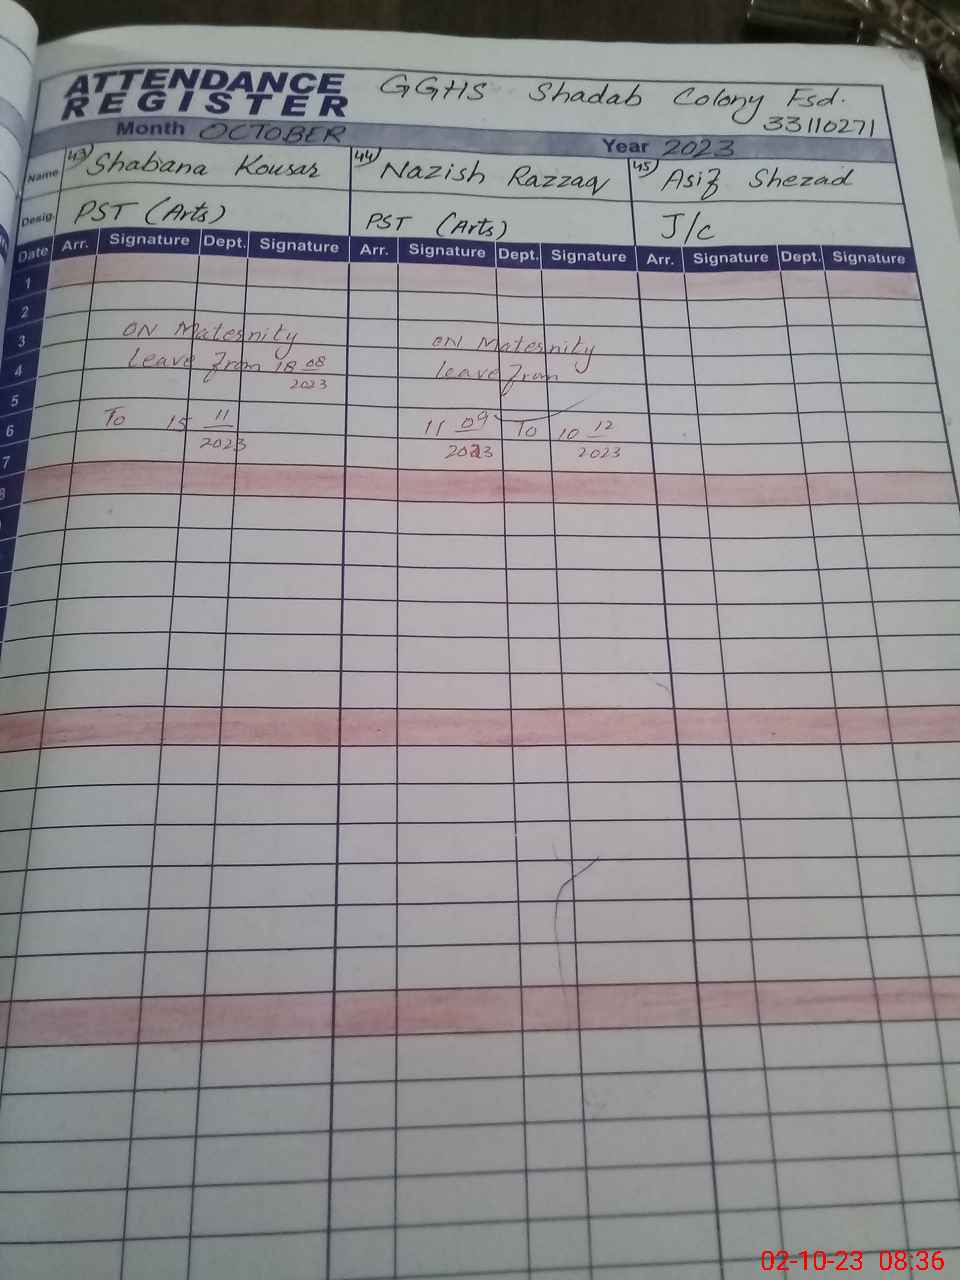 ATTENDANCE REGISTER GGHS Shadab Colony Fsd.
33110271
Month OCTOBER Year 2023
Name 43) Shabana Kousar 44) Nazish Razzaq 45) Asif Shezad
Desig. PST (Arts) PST (Arts) J/c
Date Arr. Signature Dept. Signature Arr. Signature Dept. Signature Arr. Signature Dept. Signature
1
2
3 ON Maternity ON Maternity
4 leave from 18 08 2023 leave from
5
6 To 15 11 2023 11 09 2023 To 10 12 2023
7
8
02-10-23 08:36